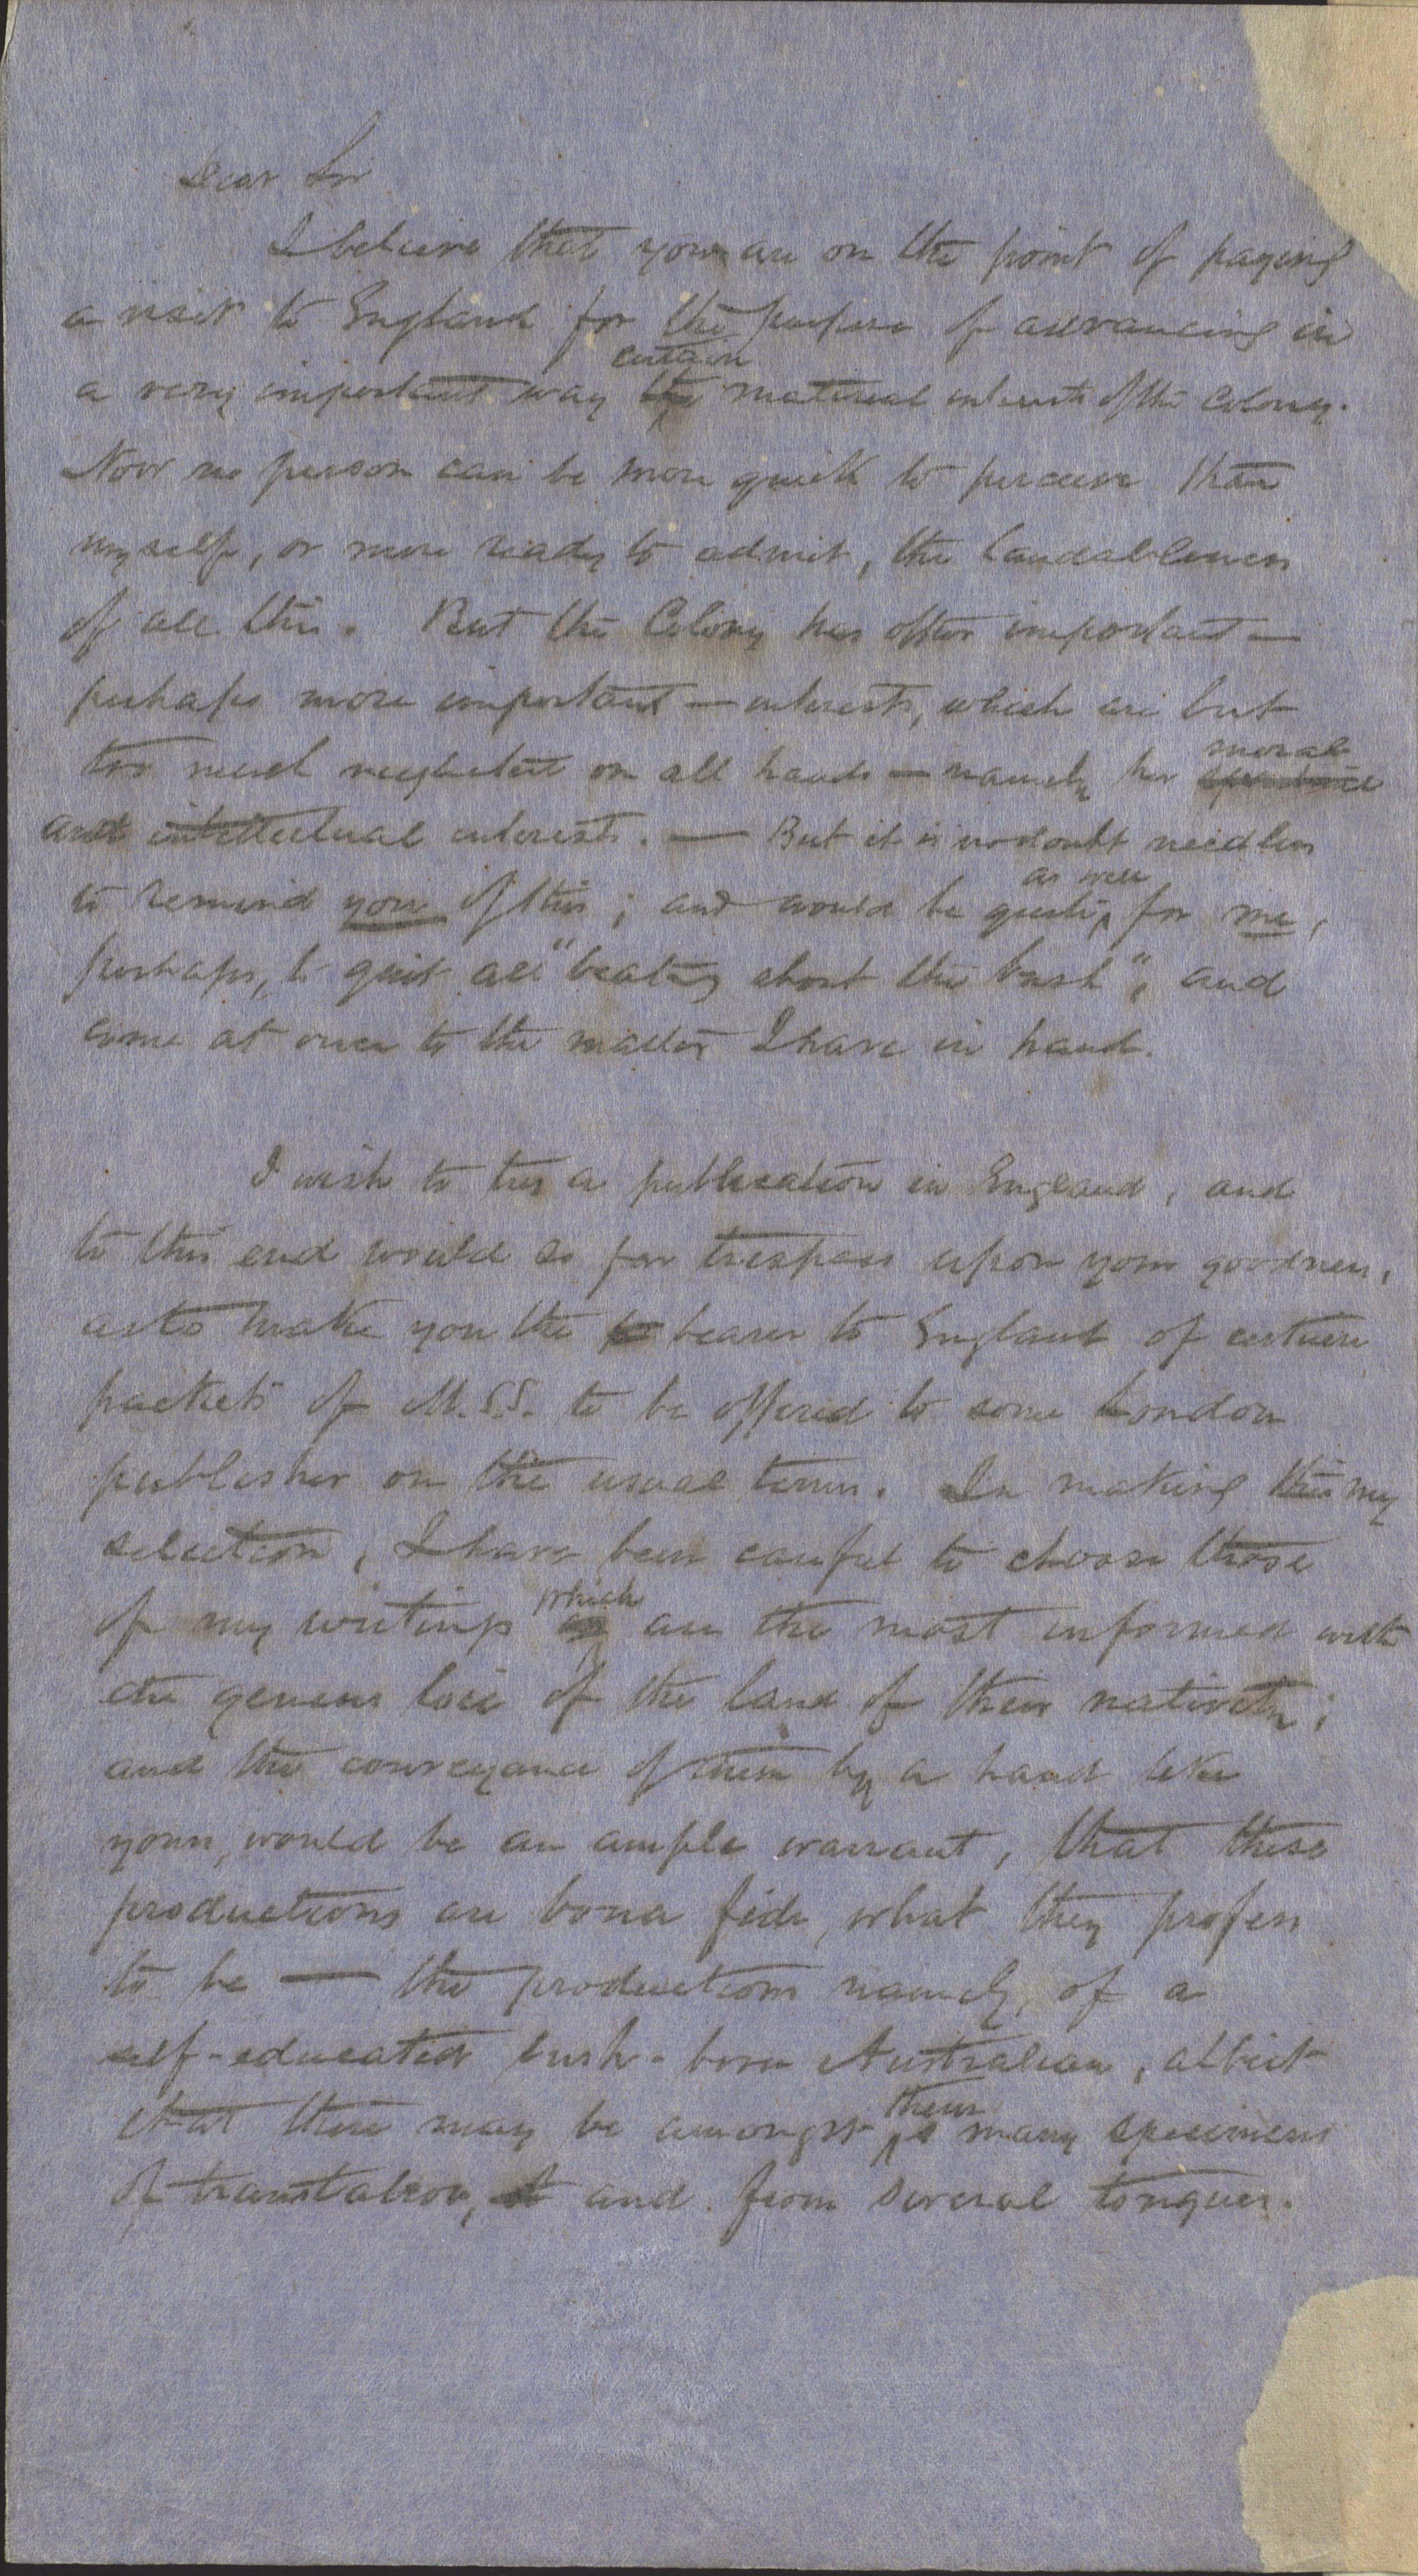 Dear Sir
I believe that you are on the point of paying
a visit to England for the purpose of advancing in
a very important way certain material interests of the Colony.
Now no person can be more quick to perceive than
myself, or more ready to admit, the laudableness
of all this. But the Colony has other important —
perhaps more important — interests, which are but
too much neglected on all hands — namely her moral
and intellectual interests. — But it is no doubt needless
to remind you of this; and would be quite as well for me,
perhaps, to quit all "beating about the bush", and
come at once to the matter I have in hand.
I wish to try a publication in England, and
to this end would so far trespass upon your goodness,
as to make you the bearer to England of certain
packets of M.S.S. to be offered to some London
publisher on the usual terms. In making this my
selection, I have been careful to choose those
of my writings which are the most informed with
the genius loci of the land of their nativity;
and the conveyance of them by a hand like
yours, would be an ample warrant, that these
productions are bona fide, what they profess
to be — the productions namely, of a
self-educated bush-born Australian, albeit
that there may be amongst them many specimens
of translation, and from several tongues.